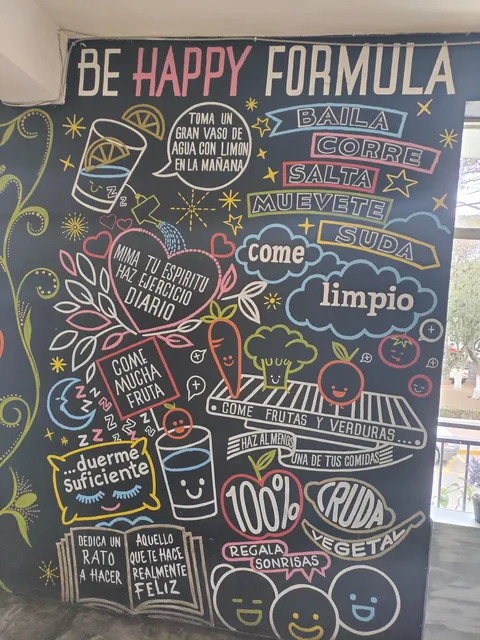 BE HAPPY FORMULA
TOMA UN
GRAN VASO DE
AGUA CON LIMON
EN LA MAÑANA
BAILA
CORRE
SALTA
MUEVETE
SUDA
come
limpio
MIMA TU ESPIRITU
HAZ EJERCICIO
DIARIO
COME
MUCHA
FRUTA
COME FRUTAS Y VERDURAS...
HAZ AL MENOS
UNA DE TUS COMIDAS
100%
CRUDA
VEGETAL
Z Z Z
...duerme
suficiente
DEDICA UN
RATO
A HACER
AQUELLO
QUE TE HACE
REALMENTE
FELIZ
REGALA
SONRISAS